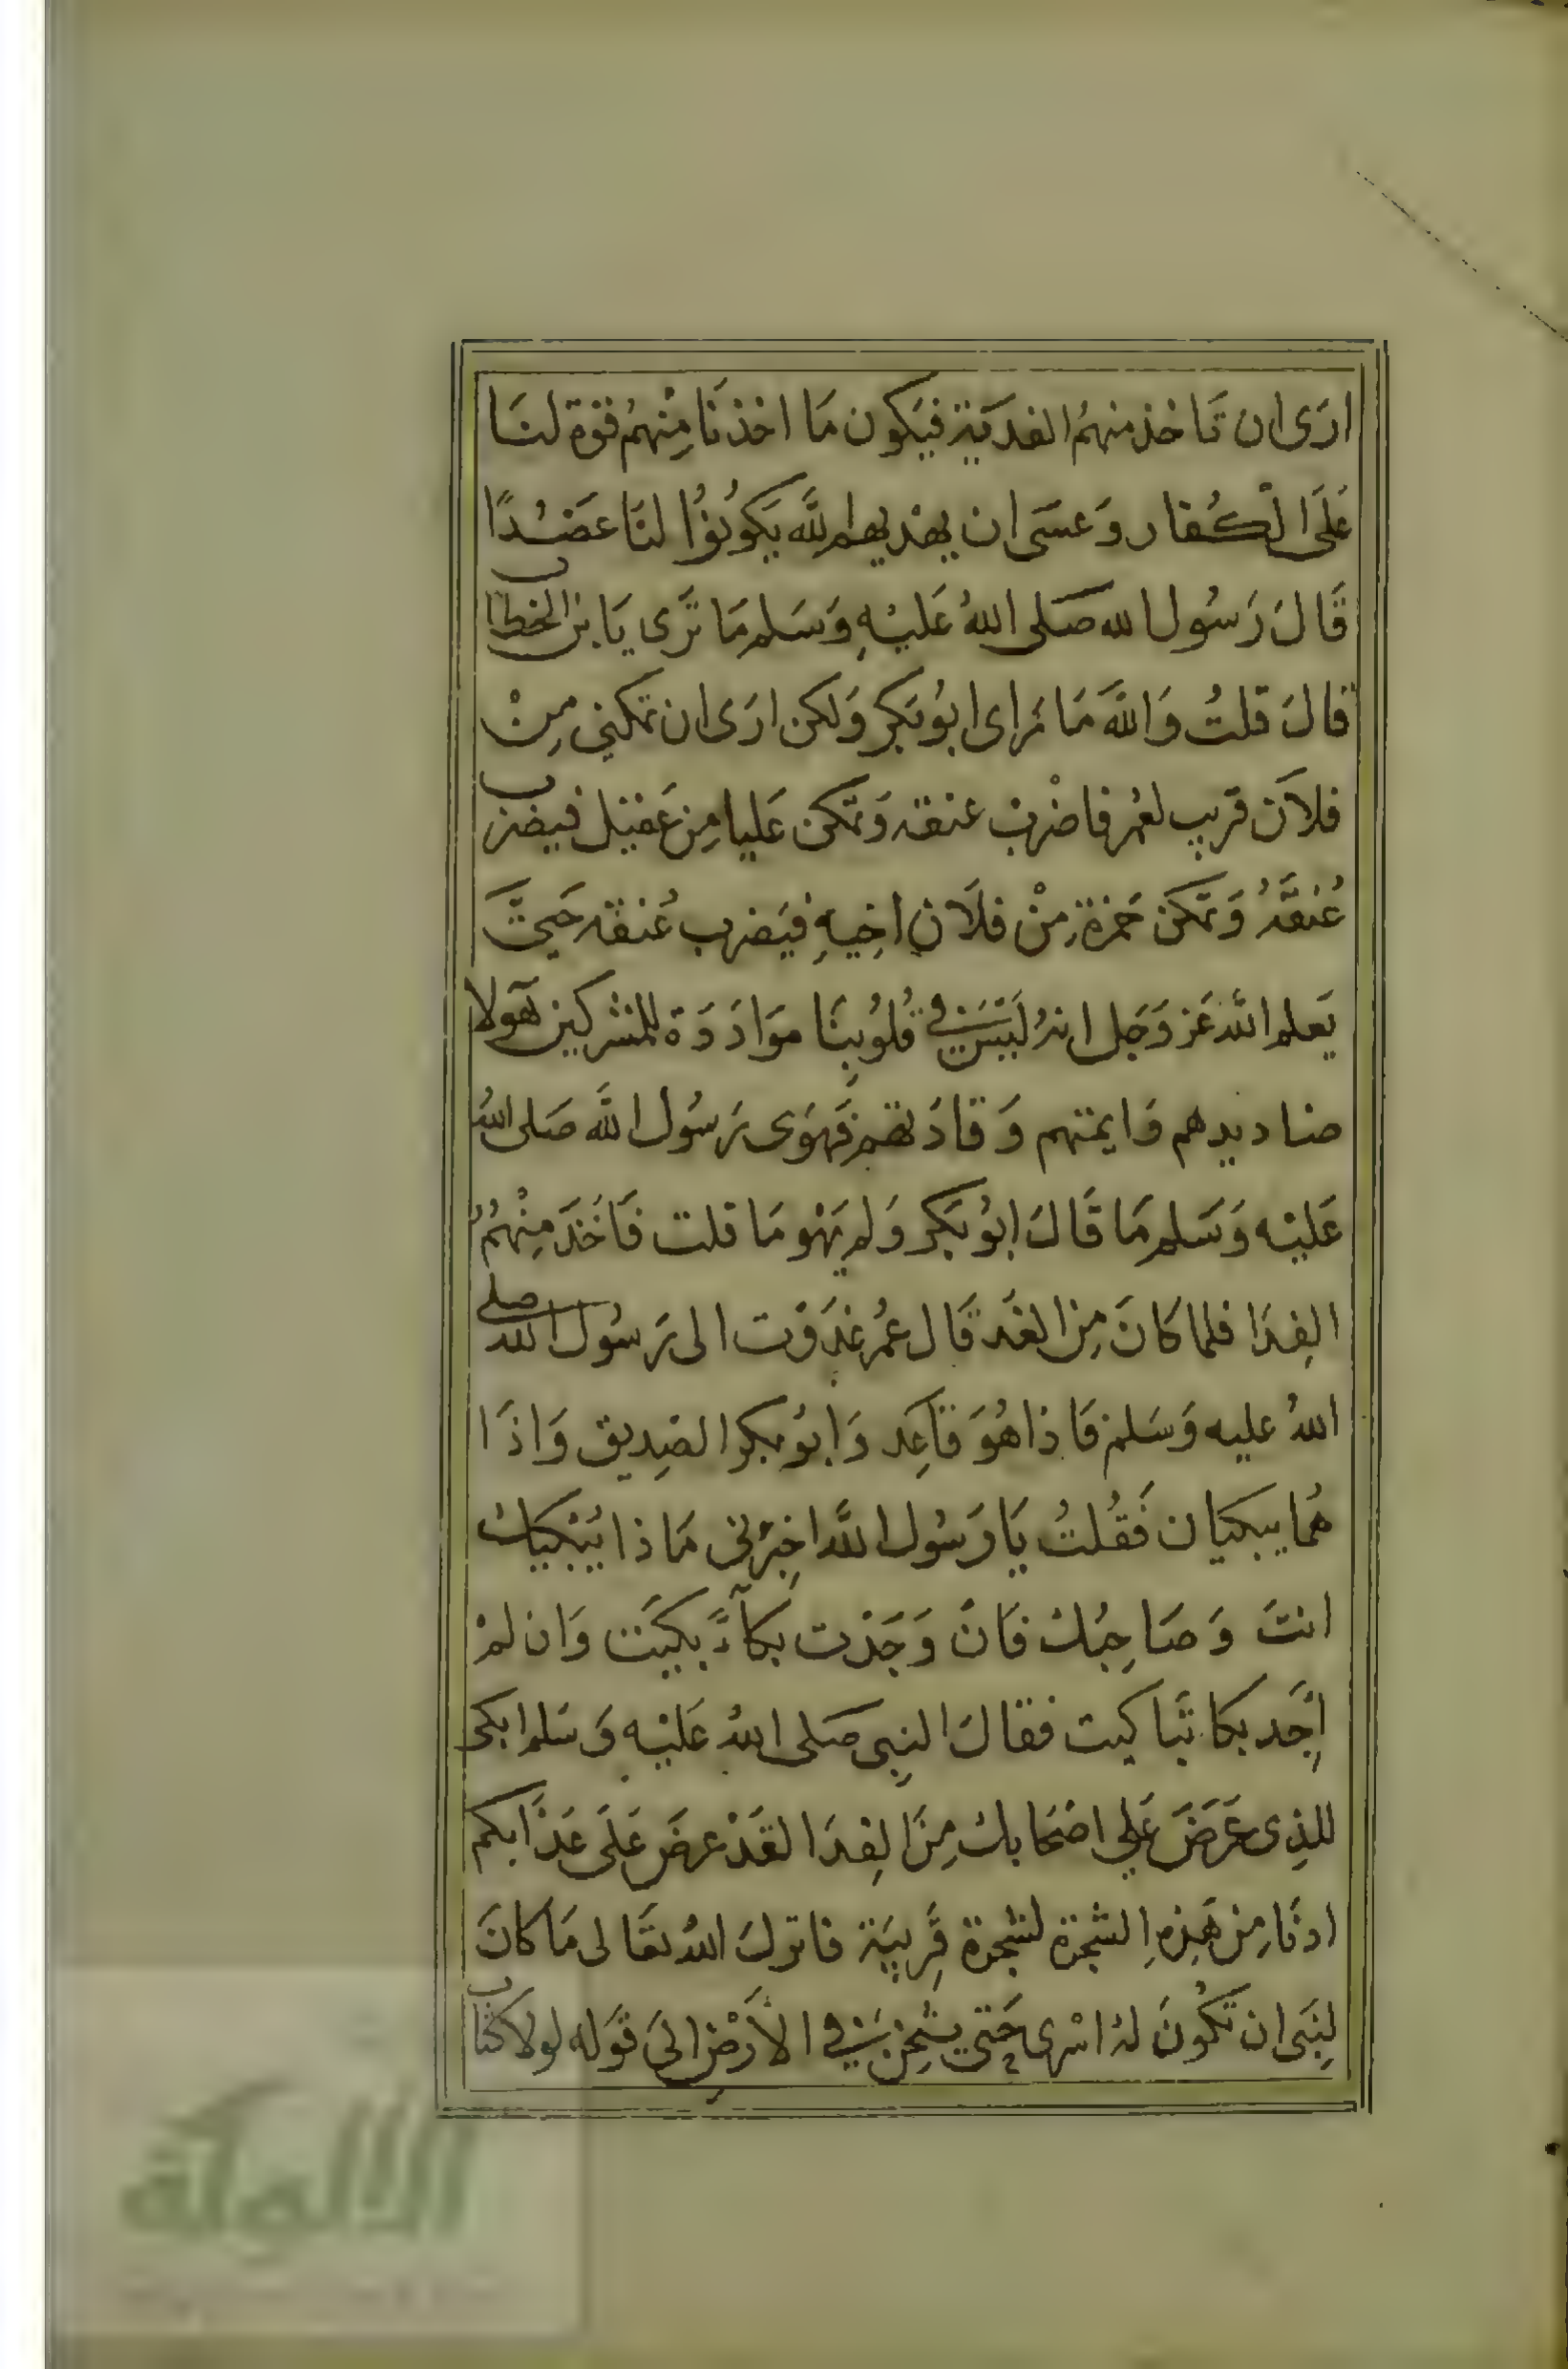 ارَى ان تَاخذ منهمُ الفدَية فيَكون مَا اخذنَا مِنْهمُ قوة لنَا
عَلَى الْكُفار وَعسَى ان يهديهم اللَّه يَكوُنوُا لنَا عضُدًا
قَالَ رَسُول الله صَلى اللهُ عَليْهِ وَسَلم مَا تَرَى يَا بن الخطاب
قالَ قلتُ وَاللَّه مَا نرَاى ابوُ بَكر وَلكن ارَى ان تمكني مِنْ
فلاَن قريب لعُمر فاضْربْ عنقه وَتمكن عَليا مِن عَقيل فيضرب
عُنقَهُ وَتمكن حَمزة مِنْ فلاَن اخِيهِ فيَضرب عُنقه حَتىَّ
يَعلم اللَّه عَز وَجَل انهُ لَيْسَ فى قُلوُبِنَا موَادَدَة للمشركين هَولا
صناديدهم وَايمتهم وَقادَتهم فَهوَى رَسُول اللَّه صَلى اللهُ
عَليْه وَسَلم مَا قَالَ ابوُ بَكر وَلم يَهْو مَا قلت فَاخَذَ مِنْهمُ
الفِدَا فلما كَانَ مِن الغَد قَال عُمر غدَوْت الى رَسُول الله صلى
اللهُ عليه وَسَلم فَاذا هُوَ قَاعِد وَابوُ بكر الصِديق وَاذَا
هُما يبكيَان فَقُلتُ يَا رَسُول اللَّه اخِبرْنى مَاذا يُبْكيك
انتَ وَصَاحِبُكْ فَانْ وَجَدْت بكآءً بكيَت وَان لمْ
اجَد بكا تَباكيت فقالَ النبِى صَلى اللهُ عَليْه وَسَلم ابكى
للذِى عَرَضَ عَلي اصْحَابكْ مِنَ الفِدَا لقَدْ عرضَ عَلَى عَذَابكم
ادنَا مِن هَذِهِ الشجرَة لشجرَة قَرِيبَة فانزلَ اللهُ تعَالى مَا كانَ
لِنبَى ان تَكُونَ لهُ اسْرى حَتى يثخِنَ فى الأَرَضْ الىَ قوَله لولا كتاب